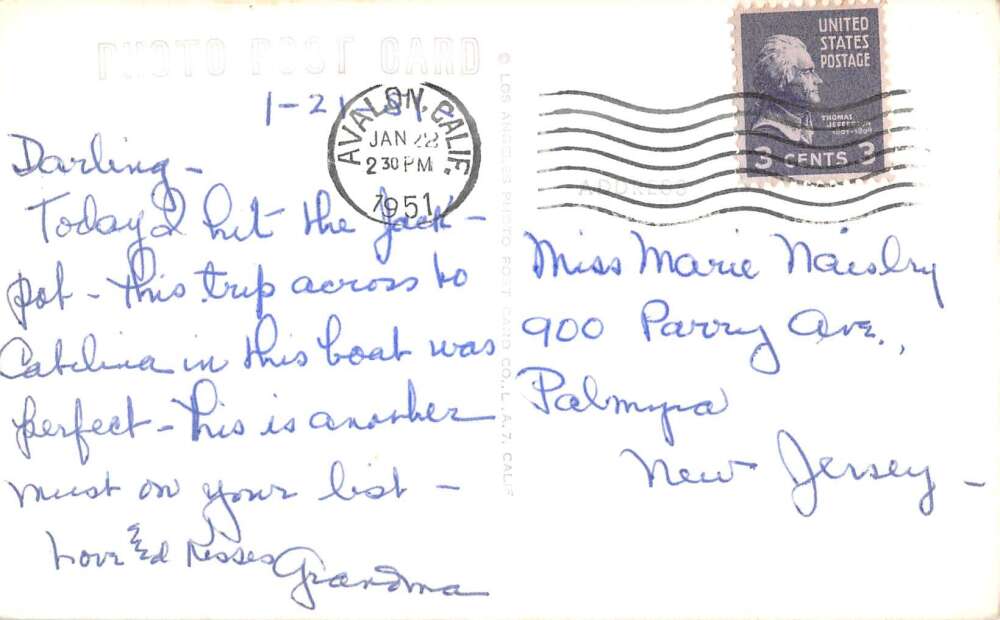 PHOTO POST CARD
1-21-51
AVALON, CALIF.
JAN 22
2 30 PM
1951
Darling -
Today I hit the jack-
pot - this trip across to
Catilina in this boat was
perfect - This is another
must on your list -
Love and kisses
Grandma
© LOS ANGELES PHOTO POST CARD CO., L.A. 7, CALIF
UNITED
STATES
POSTAGE
THOMAS
JEFFERSON
1801-1809
3 CENTS 3
ADDRESS
Miss Marie
900 Parry Ave.,
Palmyra
New Jersey -